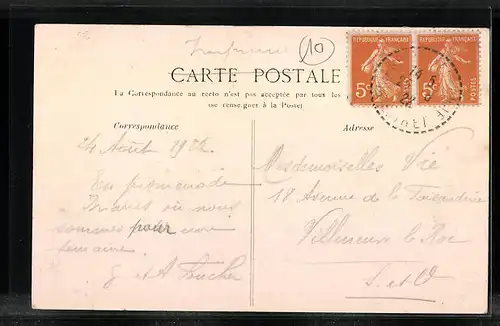 Imprimé
10
REPUBLIQUE FRANÇAISE REPUBLIQUE FRANÇAISE
5c POSTES 5c POSTES
CARTE POSTALE
La Correspondance au recto n'est pas acceptée par tous les
(se renseigner à la Poste)
Correspondance
Adresse
24 Août 1922
En promenade
à Briares où nous
sommes pour une
semaine
Mesdemoiselles Vié
18 Avenue de la
Villeneuve le Roi
S. et O